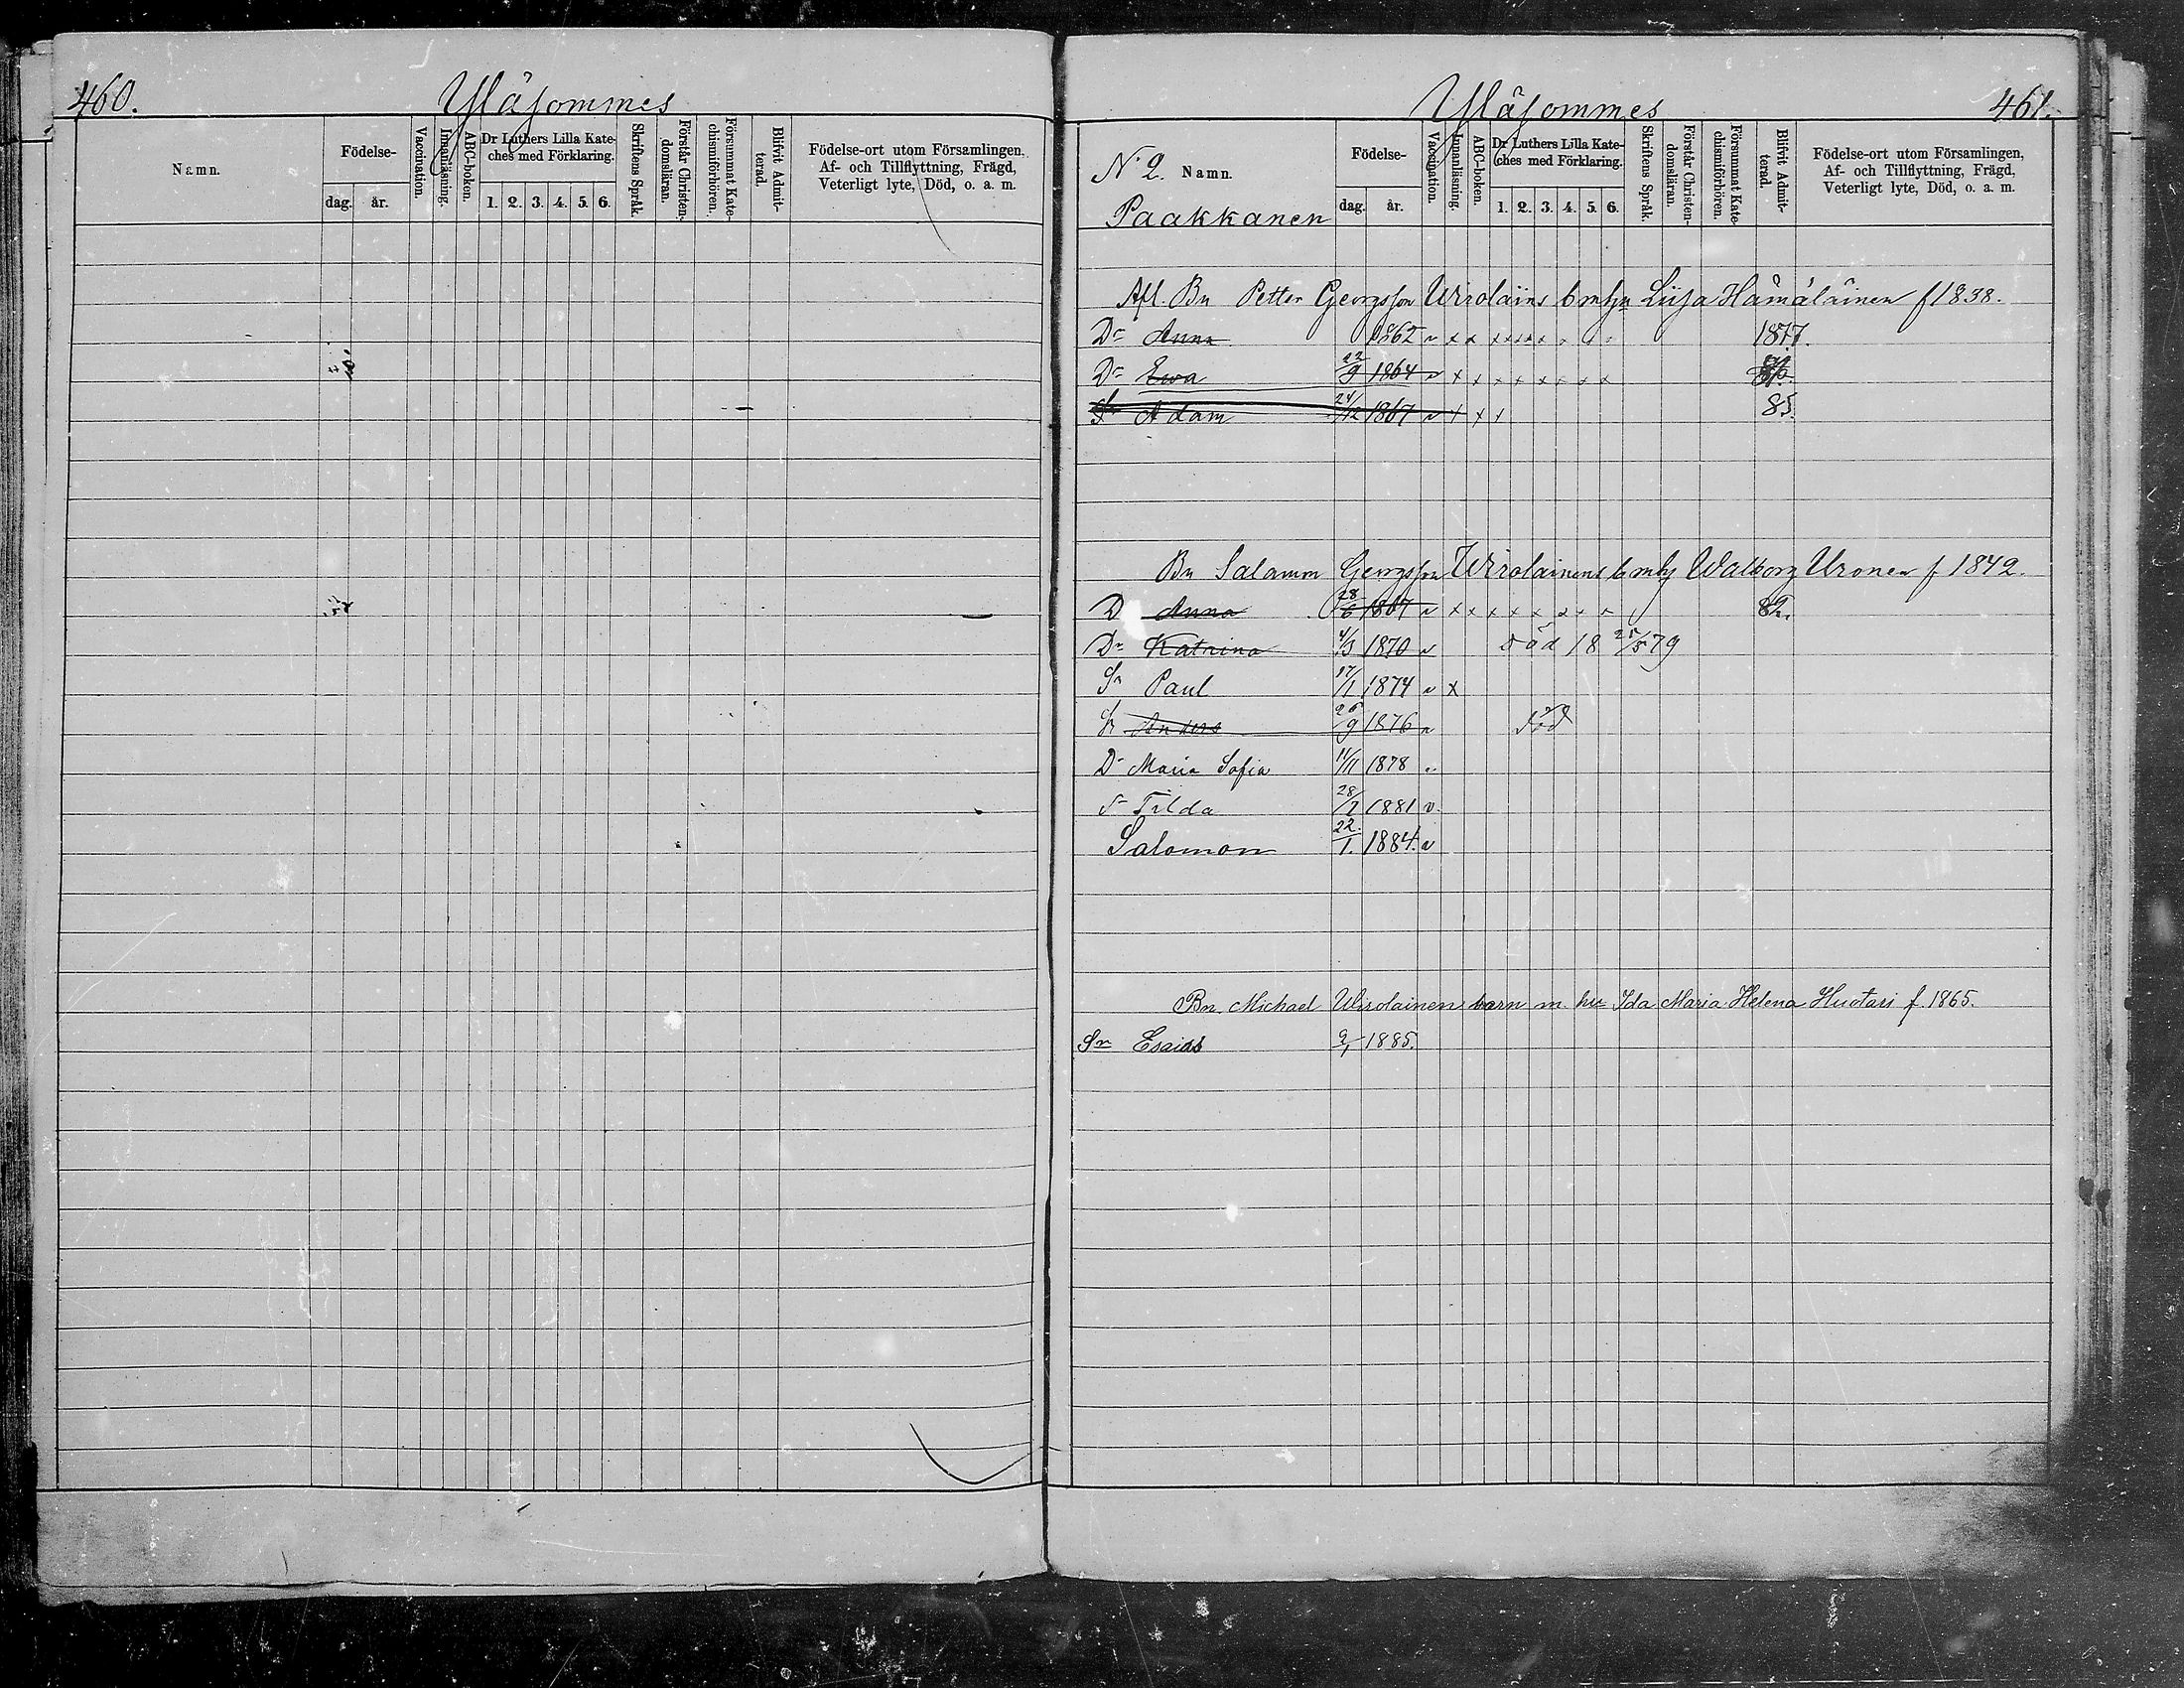 460. Yläsommes
Namn. Födelse- dag. år. Vaccination. Innanläsning. ABC-boken. Dr Luthers Lilla Kateches med Förklaring. 1. 2. 3. 4. 5. 6. Skriftens Språk. Förstår Christendomsläran. Försummat Katechismiförhören. Blifvit Admitterad. Födelse-ort utom Församlingen, Af- och Tillflyttning, Frägd, Veterligt lyte, Död, o. a. m.
Yläsommes 461.
N:o 2. Namn. Födelse- dag. år. Vaccination. Innanläsning. ABC-boken. Dr Luthers Lilla Kateches med Förklaring. 1. 2. 3. 4. 5. 6. Skriftens Språk. Förstår Christendomsläran. Försummat Katechismiförhören. Blifvit Admitterad. Födelse-ort utom Församlingen, Af- och Tillflyttning, Frägd, Veterligt lyte, Död, o. a. m.
Paakkanen
Afl. Bn Petter Georgsson Wirolains b m hn Liisa Hämäläinen f 1838.
Dr Anna 1862 v x x x x x x x 1877.
Dr Ewa 22/9 1864 v x x x x x x x x
Sn Adam 24/12 1867 v x x x 85.
Bn Salamon Georgsson Wirolainens b m hu Walborg Uronen f 1842.
Dr Anna 28/6 1867 v x x x x x x x x 82.
Dr Katrina 4/3 1870 v död 18 25/5 79
Sn Paul 17/1 1874 v x
Sn Anders 26/9 1876 v död
Dr Maria Sofia 11/11 1878 v
Tilda 28/7 1881 v.
Salomon 22./1. 1884. v
Bn. Michael Wirolainens barn m. hu Ida Maria Helena Huotari f. 1865.
Sn Esaias 1885.